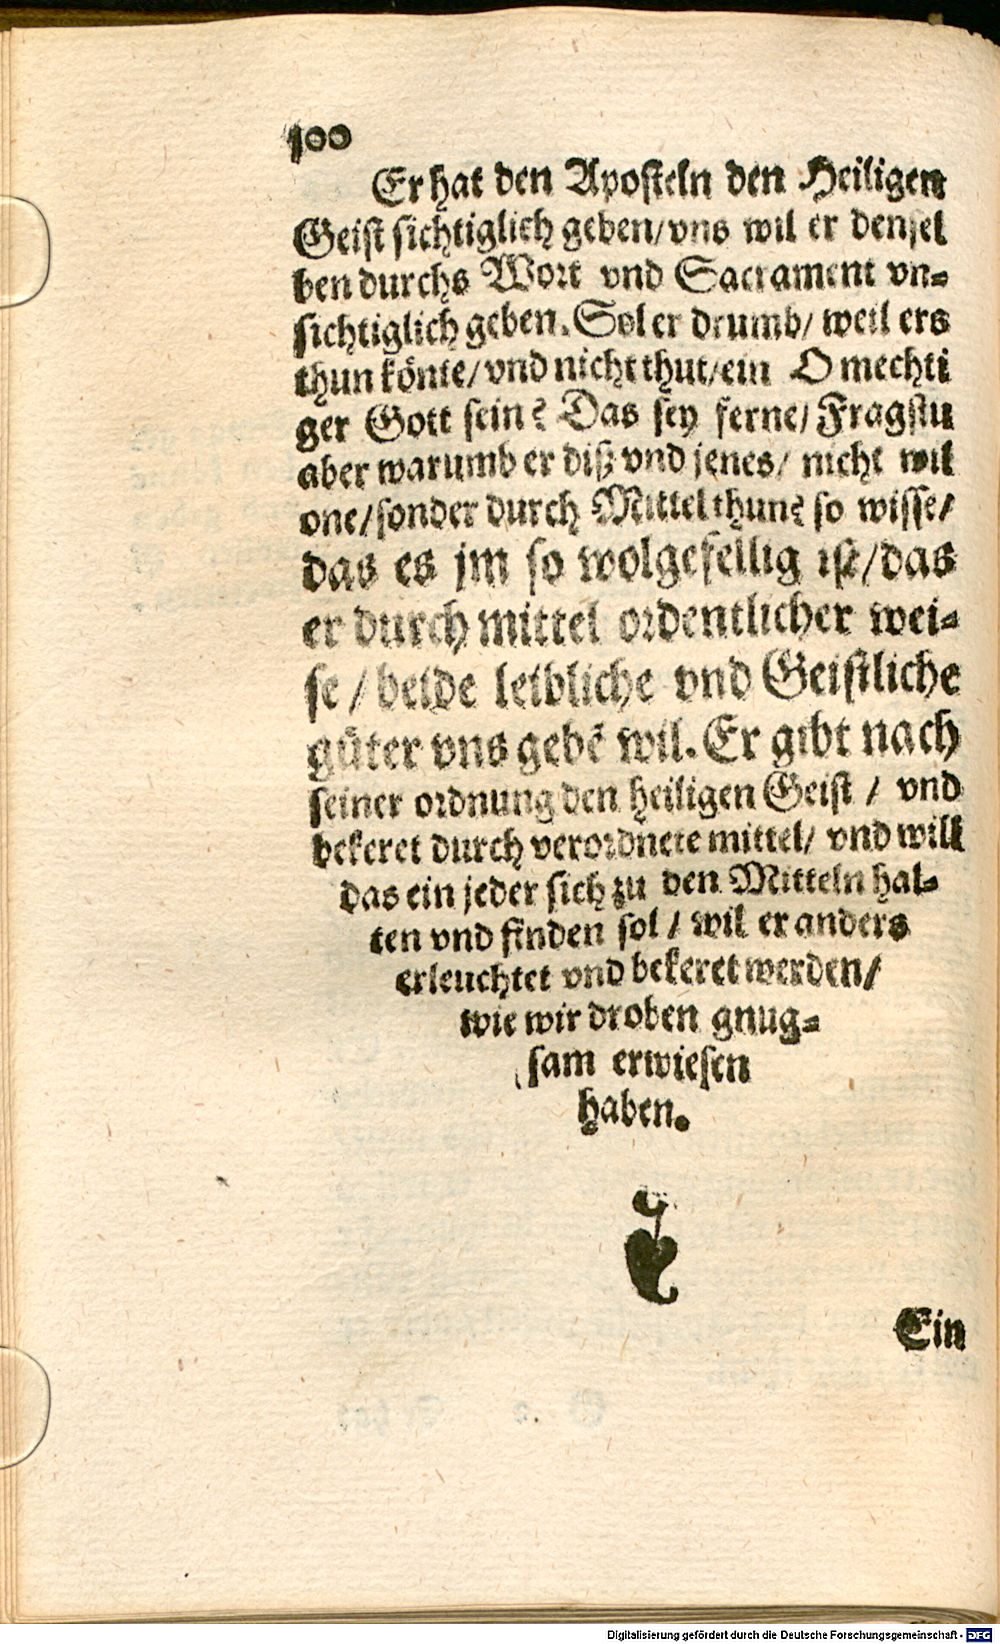 100
Er hat den Aposteln den Heiligen
Geist sichtiglich geben/vns wil er densel
ben durchs Wort vnd Sacrament vn=
sichtiglich geben. Sol er drumb/ weil ers
thun könte/vnd nicht thut/ein Omechti
ger Gott sein? Das sey ferne/ Fragstu
aber warumb er diß vnd jenes/ nicht wil
one/sonder durch Mittel thun? so wisse/
das es jm so wolgefellig ist/das
er durch mittel ordentlicher wei=
se / beide leibliche vnd Geistliche
güter vns gebē wil. Er gibt nach
seiner ordnung den heiligen Geist / vnd
bekeret durch verordnete mittel/ vnd will
das ein jeder sich zu den Mitteln hal=
ten vnd finden sol / wil er anders
erleuchtet vnd bekeret werden/
wie wir droben gnug=
sam erwiesen
haben.
Ein
Digitalisierung gefördert durch die Deutsche Forschungsgemeinschaft - DFG